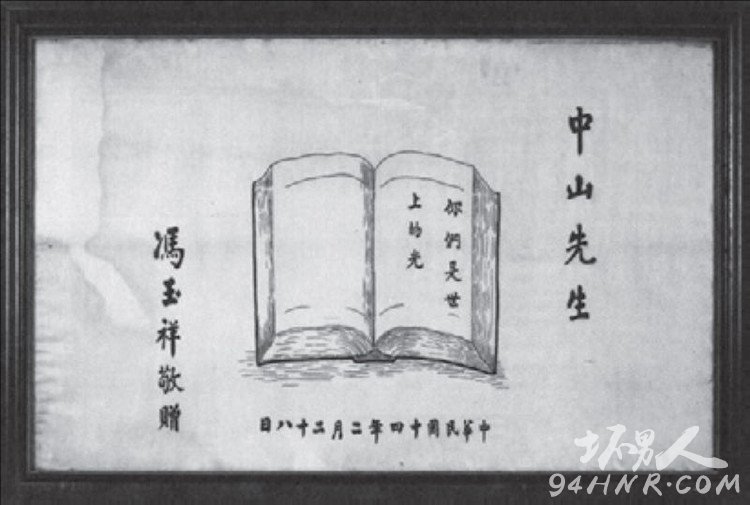 中山先生
你們是世
上的光
馮玉祥敬贈
中華民國十四年二月二十八日
坏男人
94HNR.COM